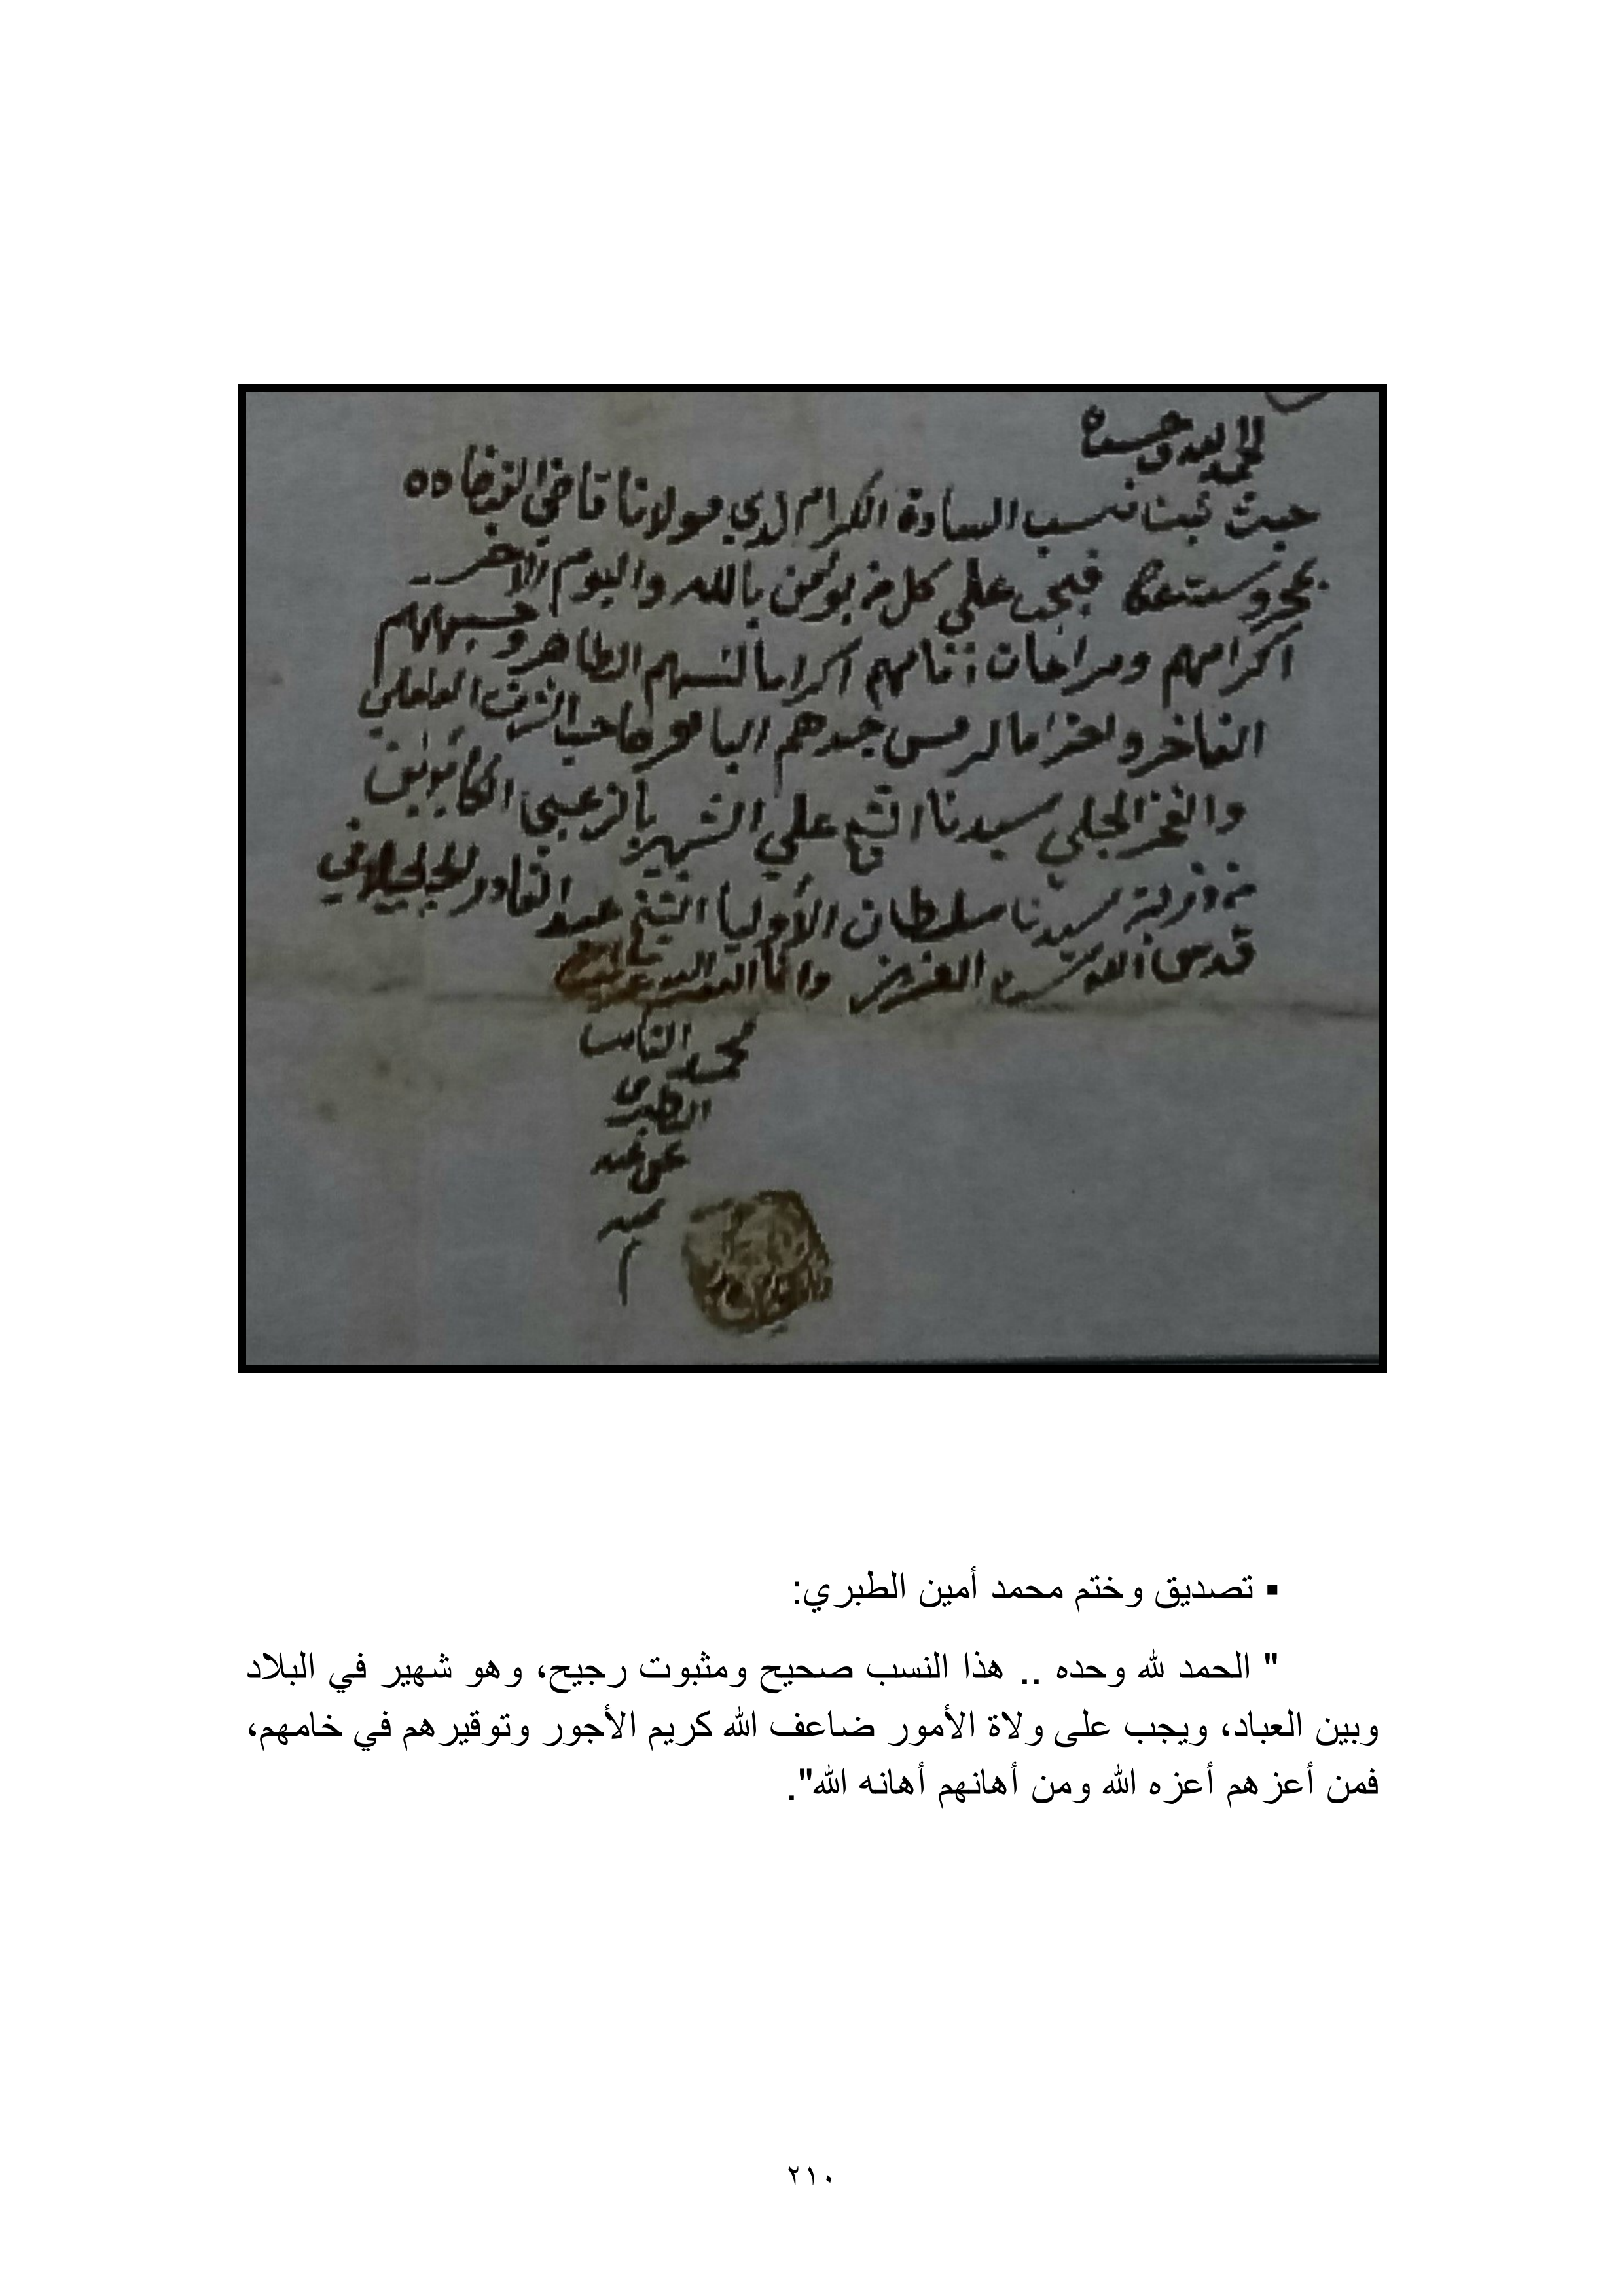 الحمد لله وحده
حيث ثبت نسب السادة الكرام لدي مولانا قاضي
بمحروسة عكا فيجب علي كل من يؤمن بالله واليوم الاخر
اكرامهم ومراعات اكراما لنسبهم الطاهر وحسبهم
الفاخر واحتراما جدهم صاحب الشرف
والفخر الجلي سيدنا الشيخ علي الشهير بالزعبي
من ذرية سيدنا سلطان الأوليا الشيخ عبد القادر الجيلاني
قدس الله سره العزيز وانا
محمد
الطبري
عفي عنه
▪ تصديق وختم محمد أمين الطبري:
" الحمد لله وحده .. هذا النسب صحيح ومثبوت رجيح، وهو شهير في البلاد
وبين العباد، ويجب على ولاة الأمور ضاعف الله كريم الأجور وتوقيرهم في خامهم،
فمن أعزهم أعزه الله ومن أهانهم أهانه الله".
٢١٠